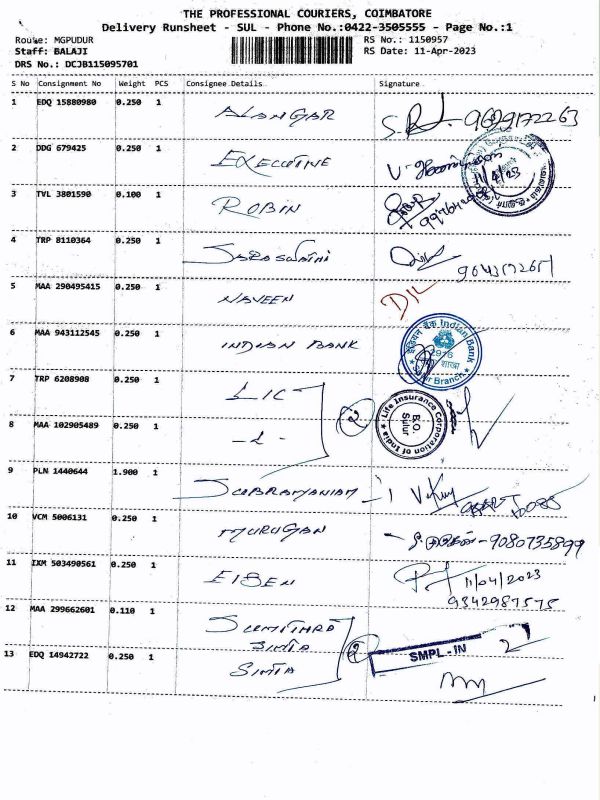 THE PROFESSIONAL COURIERS, COIMBATORE
Delivery Runsheet - SUL - Phone No.:0422-3505555 - Page No.:1
Route: MGPUDUR
RS No.: 1150957
Staff: BALAJI
RS Date: 11-Apr-2023
DRS No.: DCJB115095701
S No Consignment No Weight PCS Consignee Details Signature
1 EDQ 15880980 0.250 1 ALANGAR
2 DDG 679425 0.250 1 EXECUTIVE
11/4/23
3 TVL 3801590 0.100 1 ROBIN
4 TRP 8110364 0.250 1 SARASWATHI
5 MAA 290495415 0.250 1 NAVEEN D/L
6 MAA 943112545 0.250 1 INDIAN BANK
इंडियन बैंक Indian Bank
Sulur Branch
7 TRP 6208908 0.250 1 LIC 2
Life Insurance Corporation of India
B.O.
Sulur
8 MAA 102905489 0.250 1 -L-
9 PLN 1440644 1.900 1 SUBRAMANIAM
10 VCM 5006131 0.250 1 MURUGAN - 9080735899
11 IXM 503490561 0.250 1 EIBEN 11/04/2023
9342987575
12 MAA 299662601 0.110 1 SUMITHRA
SIMTA 2
SMPL-IN 2
13 EDQ 14942722 0.250 1 SIMTA